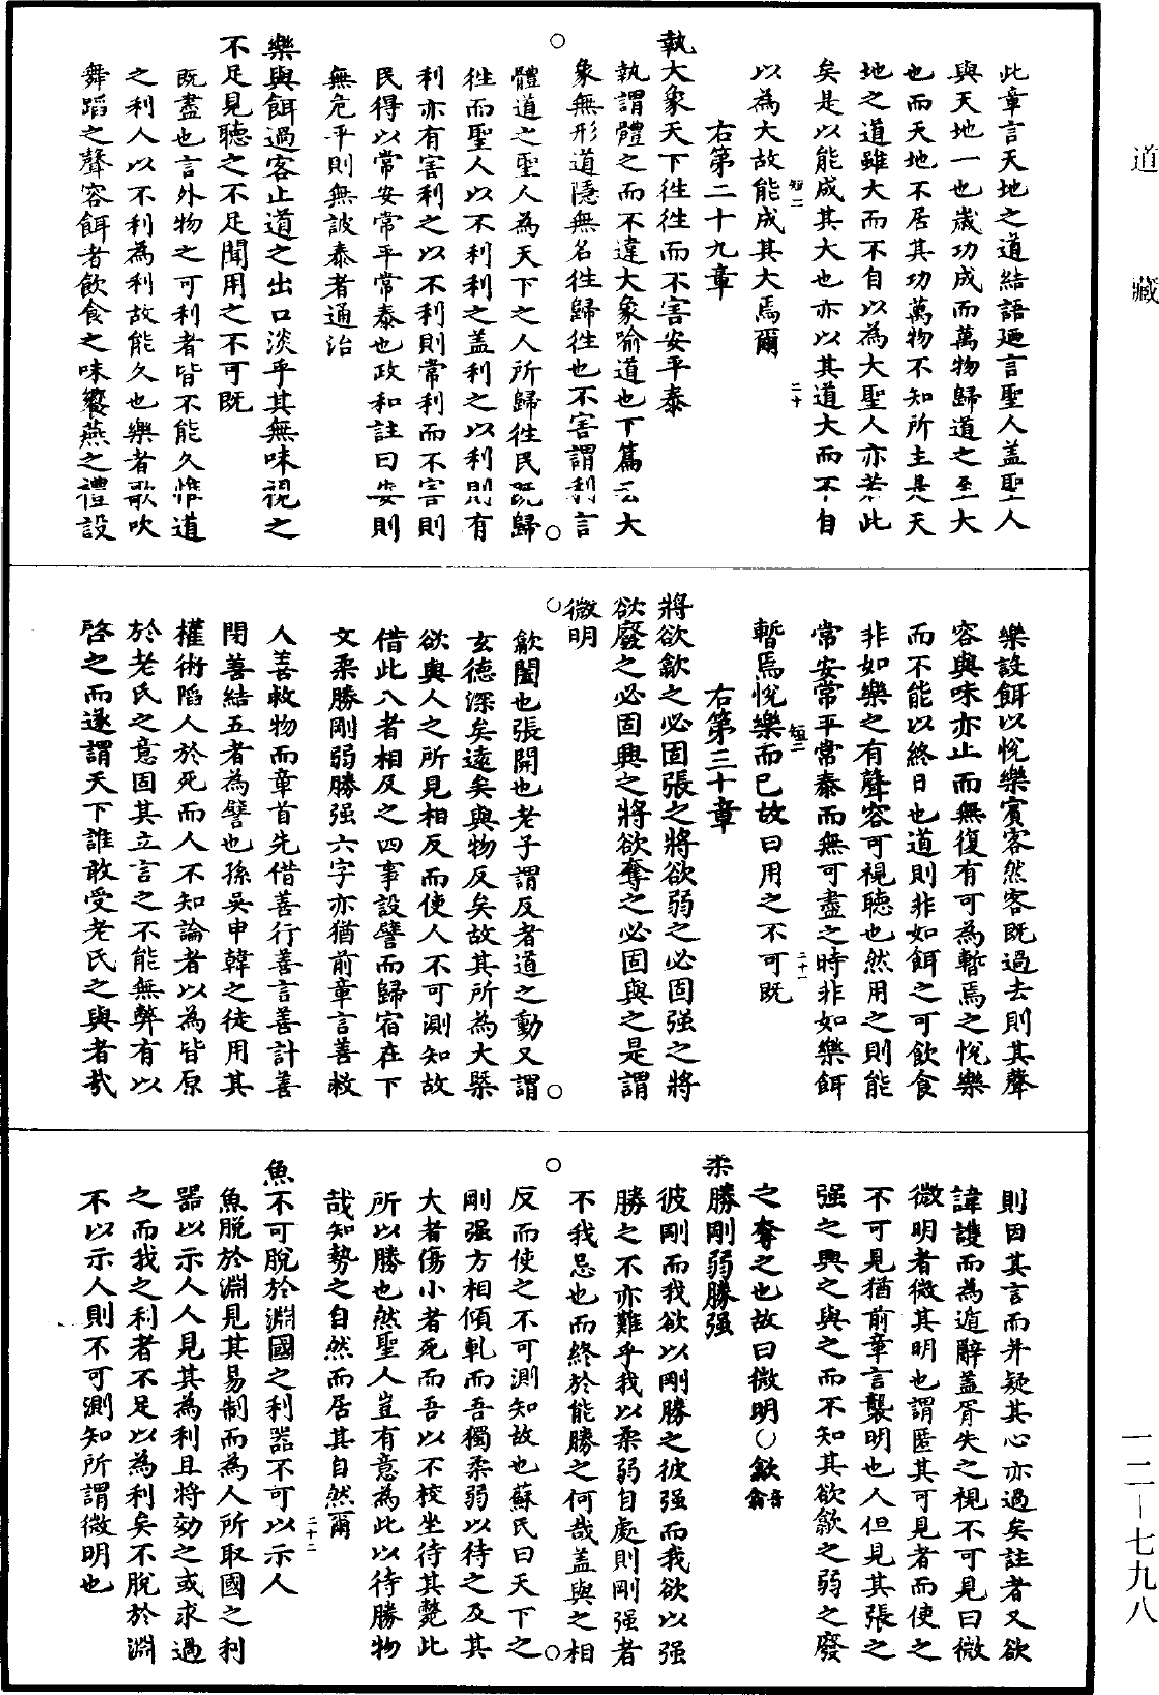 道藏
此章言天地之道結語廼言聖人盖聖人
與天地一也歲功成而萬物歸道之至大
也而天地不居其功萬物不知所主是天
地之道雖大而不自以為大聖人亦若此
矣是以能成其大也亦以其道大而不自
以為大故能成其大焉爾
短二 二十
右第二十九章
執大象天下徃徃而不害安平泰
執謂體之而不違大象喻道也下篇云大
象無形道隱無名徃歸徃也不害謂利言
體道之聖人為天下之人所歸徃民既歸
徃而聖人以不利利之盖利之以利則有
利亦有害利之以不利則常利而不害則
民得以常安常平常泰也政和註曰安則
無危平則無詖泰者通治
樂與餌過客止道之出口淡乎其無味視之
不足見聽之不足聞用之不可既
既盡也言外物之可利者皆不能久惟道
之利人以不利為利故能久也樂者歌吹
舞蹈之聲容餌者飲食之味饗燕之禮設
樂設餌以悅樂賓客然客既過去則其聲
容與味亦止而無復有可為暫焉之悅樂
而不能以終日也道則非如餌之可飲食
非如樂之有聲容可視聽也然用之則能
常安常平常泰而無可盡之時非如樂餌
暫焉悅樂而已故曰用之不可既
短二 二十一
右第三十章
將欲歙之必固張之將欲弱之必固强之將
欲廢之必固興之將欲奪之必固與之是謂
微明
歙闔也張開也老子謂反者道之動又謂
玄德深矣遠矣與物反矣故其所為大槩
欲與人之所見相反而使人不可測知故
借此八者相反之四事設譬而歸宿在下
文柔勝剛弱勝强六字亦猶前章言善救
人善救物而章首先借善行善言善計善
閉善結五者為譬也孫吳申韓之徒用其
權術陷人於死而人不知論者以為皆原
於老氏之意固其立言之不能無弊有以
啓之而遂謂天下誰敢受老氏之與者㢤
則因其言而并疑其心亦過矣註者又欲
諱護而為遁辭盖胥失之視不可見曰微
微明者微其明也謂匿其可見者而使之
不可見猶前章言襲明也人但見其張之
强之興之與之而不知其欲歙之弱之廢
之奪之也故曰微明○歙音翕
柔勝剛弱勝强
彼剛而我欲以剛勝之彼强而我欲以强
勝之不亦難乎我以柔弱自處則剛强者
不我忌也而終於能勝之何哉盖與之相
反而使之不可測知故也蘇氏曰天下之
剛强方相傾軋而吾獨柔弱以待之及其
大者傷小者死而吾以不校坐待其斃此
所以勝也然聖人豈有意為此以待勝物
哉知勢之自然而居其自然爾
魚不可脫於淵國之利器不可以示人
二十二
魚脫於淵見其易制而為人所取國之利
器以示人人見其為利且將効之或求過
之而我之利者不足以為利矣不脫於淵
不以示人則不可測知所謂微明也
一二—七九八